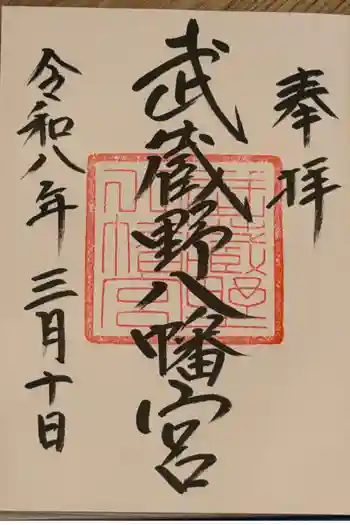 奉拝
武蔵野八幡宮
令和八年 三月十日
武蔵野八幡宮